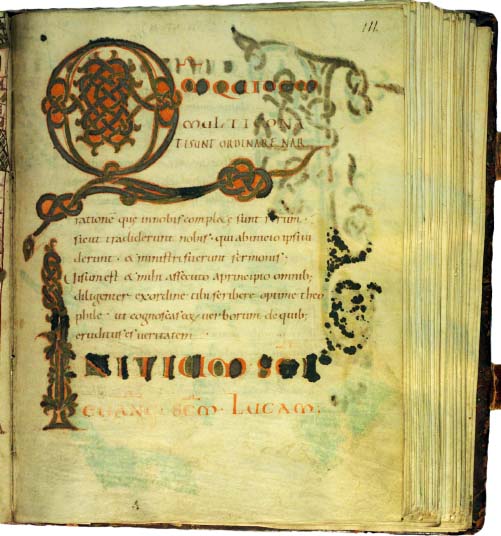 111
QM QUIDEM
MULTI CONA
TI SUNT ORDINARE NAR
rationē que in nobis complete sunt rerum ·
sicut tradiderunt nobis · qui ab initio ipsi vi
derunt · & ministri fuerunt sermonis ·
Visum est & mihi assecuto a principio omnib;
diligenter ex ordine tibi scribere optime theo
phile · ut cognoscas verborum de quib;
eruditus es veritatem
INITIUM SCI
EVANG · SCDM · LUCAM ·